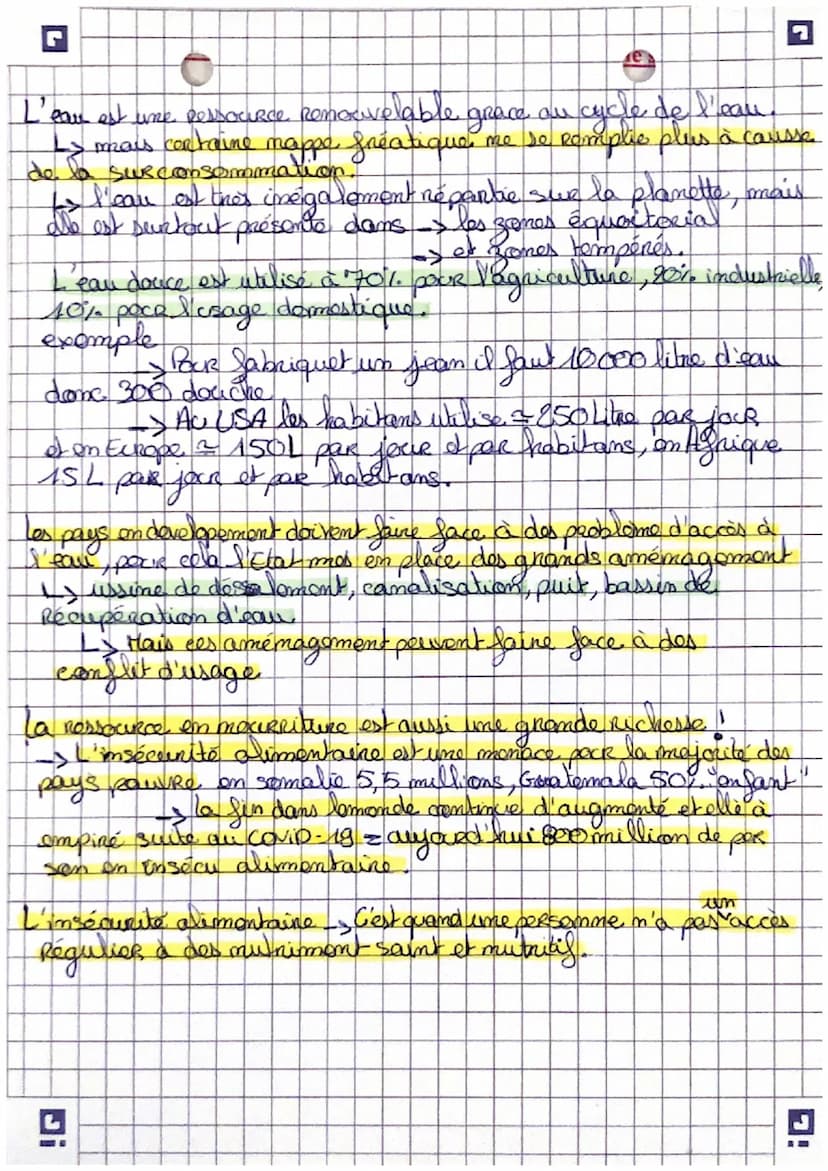 L'eau est une ressource renouvelable grace au cycle de l'eau.
↳ mais certaine nappe fréatique ne se remplie plus à causse
de la surconsommation.
↳ l'eau est très inégalement répartie sur la planette, mais
elle est surtout présente dans -> les zones équatorial
-> et zones tempérés.
L'eau douce est utilisé à 70% pour l'agriculture, 20% industrielle,
10% pour l'usage domestique.
exemple
-> Pour fabriquet un jean il faut 10 000 litre d'eau
donc 300 douche
-> Au USA les habitans utilise ≃ 250 Litre par jour
et en Europe ≃ 150L par jour et par habitans, en Afrique
15L par jour et par habitans.
Les pays en developpement doivent faire face à des problème d'accès à
l'eau, pour cela l'Etat mes en place des grands aménagement
↳ ussine de dessalement, canalisation, puit, bassin de
Récupération d'eau
↳ Mais ces aménagement peuvent faire face à des
conflit d'usage
La ressource en nourriture est aussi une grande richesse !
-> L'insécurité alimentaire est une menace pour la majorité des
pays pauvre, en somalie 5,5 millions, Guatemala 50% "enfant"
-> la fin dans le monde continue d'augmenté et elle à
empiré suite au COVID-19 = aujourd'hui 800 million de per
son en insécu alimentaire.
un
L'insécurité alimentaire -> C'est quand une personne n'a pas accès
Régulier à des nutriment saint et nutritif.